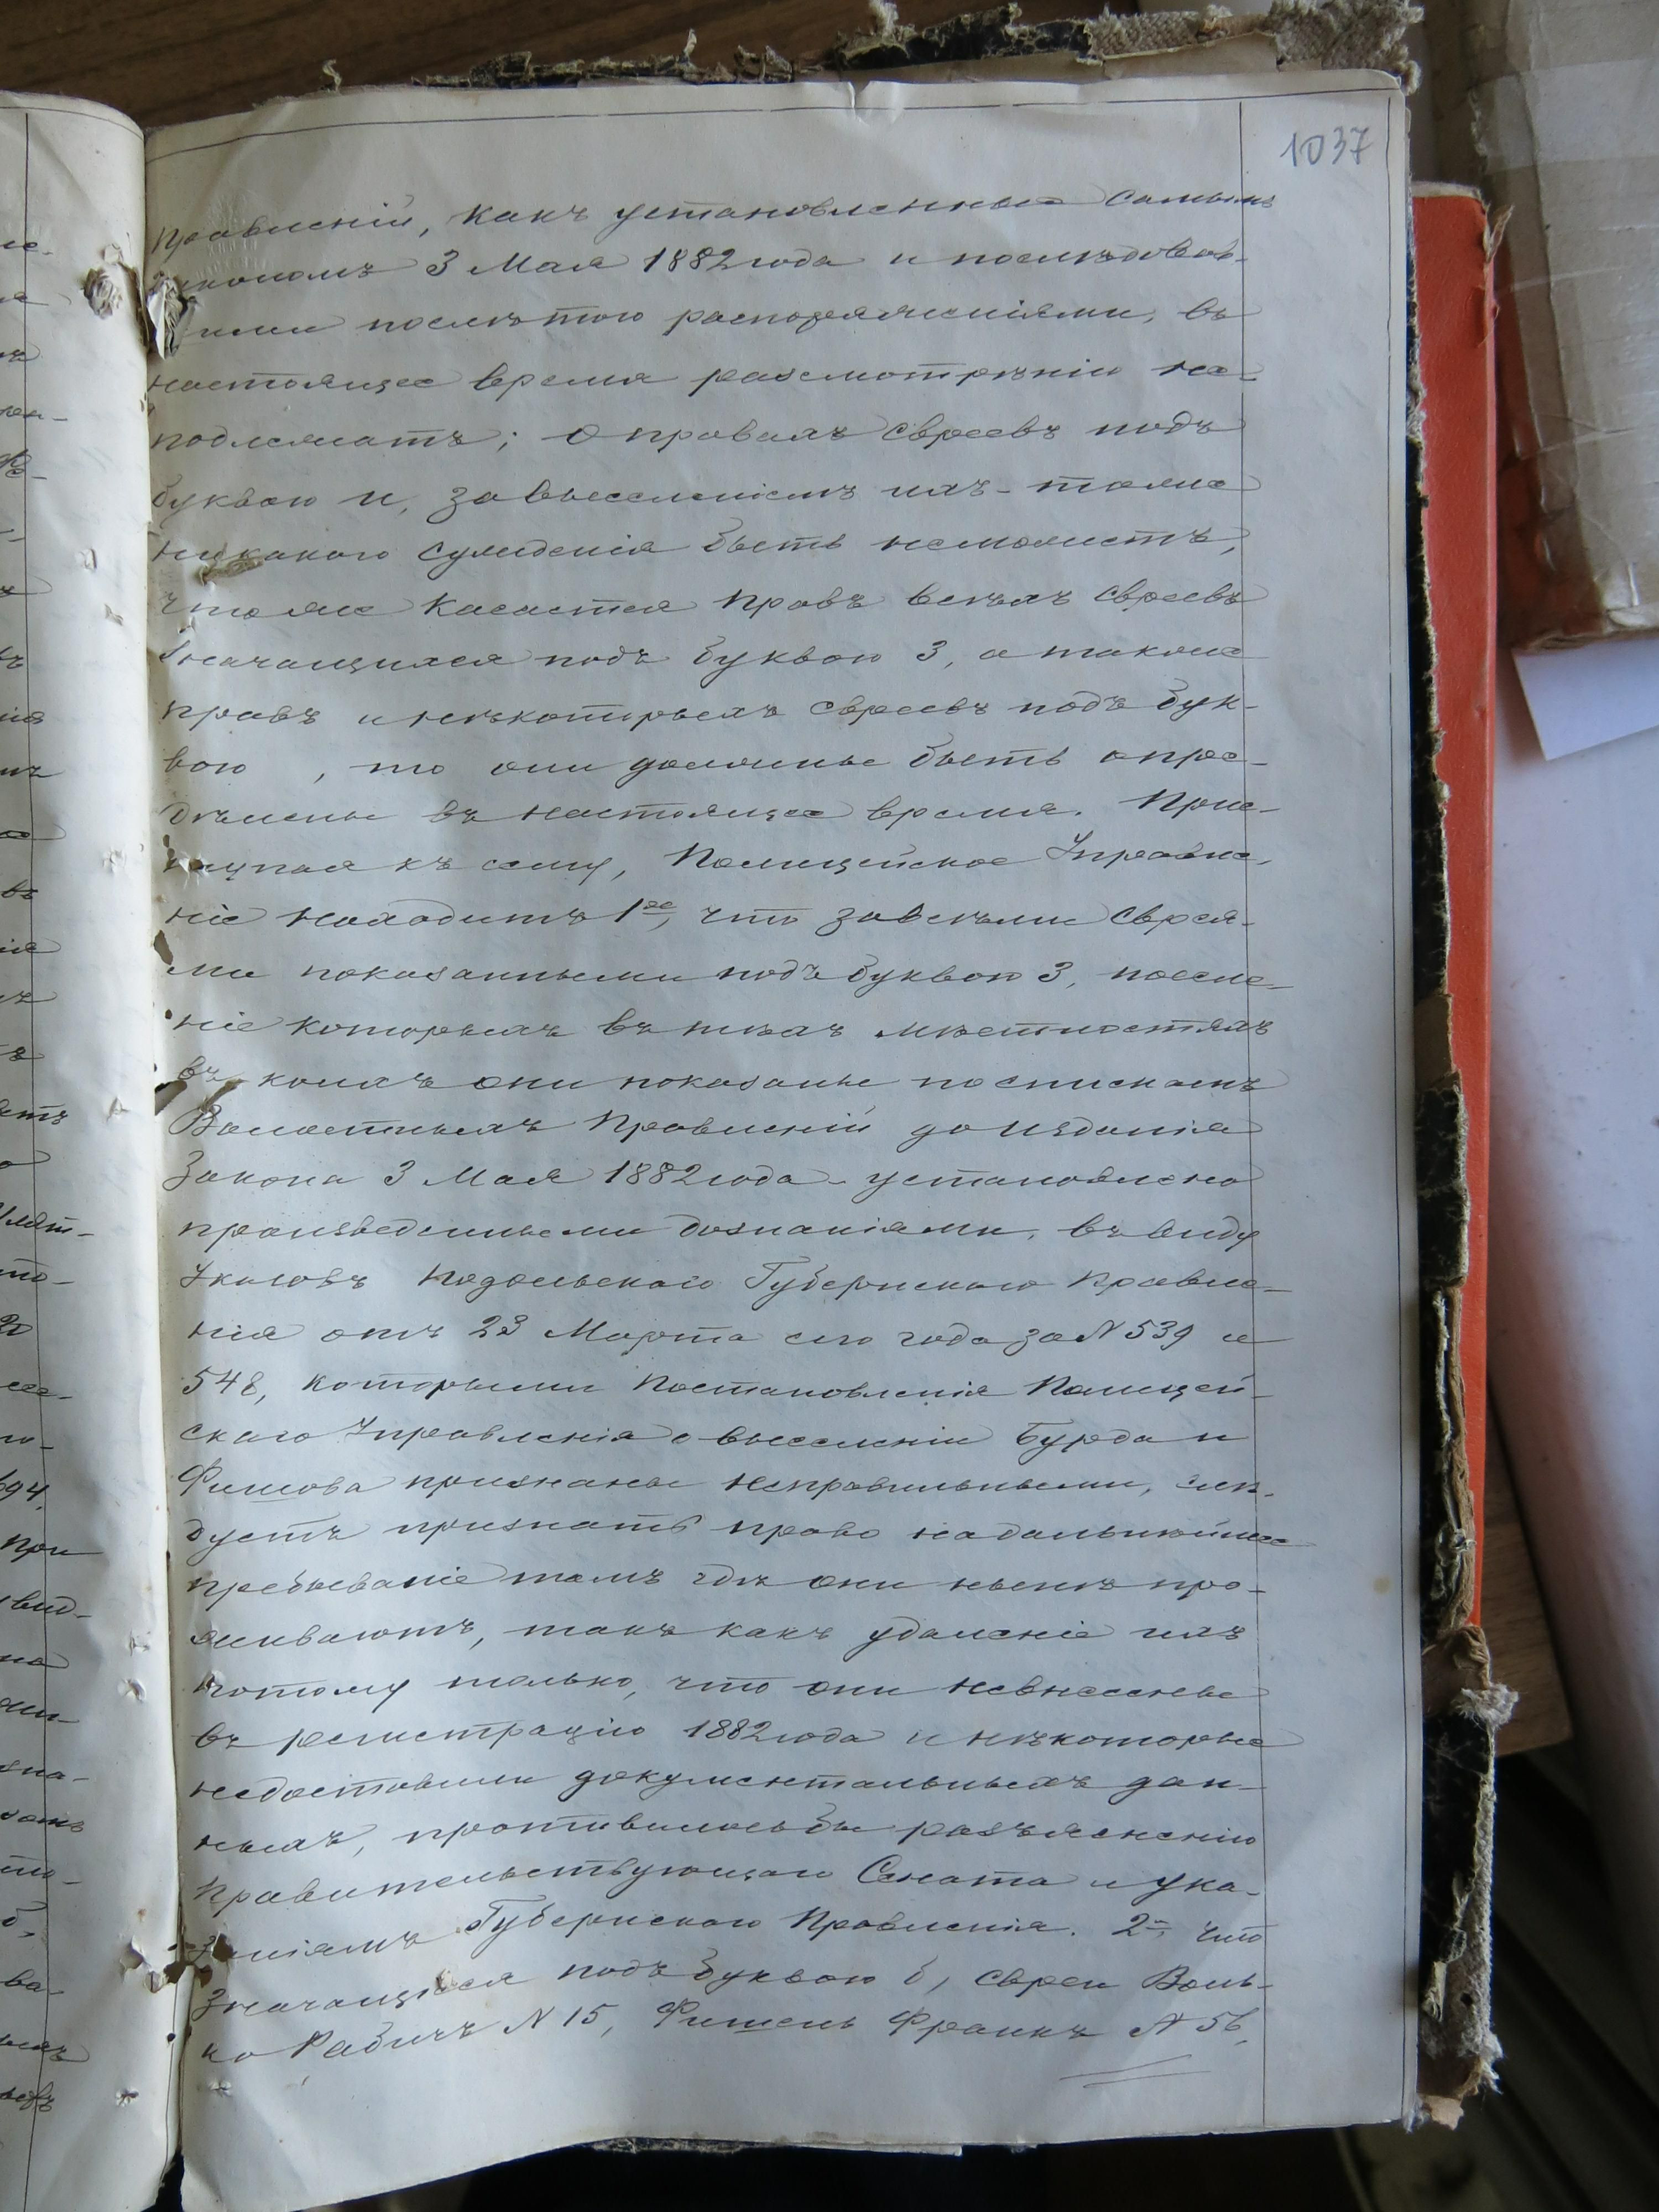 1037
правленій, какъ установленные самымъ
закономъ 3 Мая 1882 года и последовав-
шими послѣ того распоряженіями, въ
настоящее время разсмотрѣнію не-
подлежатъ; о правахъ евреевъ подъ
буквою и, за выселеніемъ ихъ - тоже
никакого сужденія быть неможетъ,
что же касается правъ всѣхъ евреевъ
значащихся подъ буквою З, а также
правъ и нѣкоторыхъ евреевъ подъ бук-
вою , то они должны быть опре-
дѣлены въ настоящее время. Прис-
тупая къ сему, Полицейское Управле-
ніе находитъ 1е, что за всѣми еврея-
ми показанными подъ буквою З, поселе-
ніе которыхъ въ тѣхъ мѣстностяхъ
въ коихъ они показаны по спискамъ
Волостныхъ Правленій до изданія
Закона 3 Мая 1882 года - установлено
произведенными дознаніями, въ виду
Указовъ Подольскаго Губернскаго Правле-
нія отъ 23 Марта сего года за N 539 и
548, которыми Постановленія Полицей-
скаго Управленія о выселеніи Бурда и
Фишова признаны неправильными, слѣ-
дуетъ признать право на дальнѣйшее
пребываніе тамъ гдѣ они нынѣ про-
живаютъ, такъ какъ удаленіе ихъ
потому только, что они невнесены
въ регистрацію 1882 года и нѣкоторые
недоставили документальныхъ дан-
ныхъ, противилось бы разъясненію
Правительствующаго Сената и ука-
заніямъ Губернскаго Правленія. 2е, что
значащіеся подъ буквою б, евреи Воль-
ко Рабичъ N 15, Фишель Франкъ N 56,